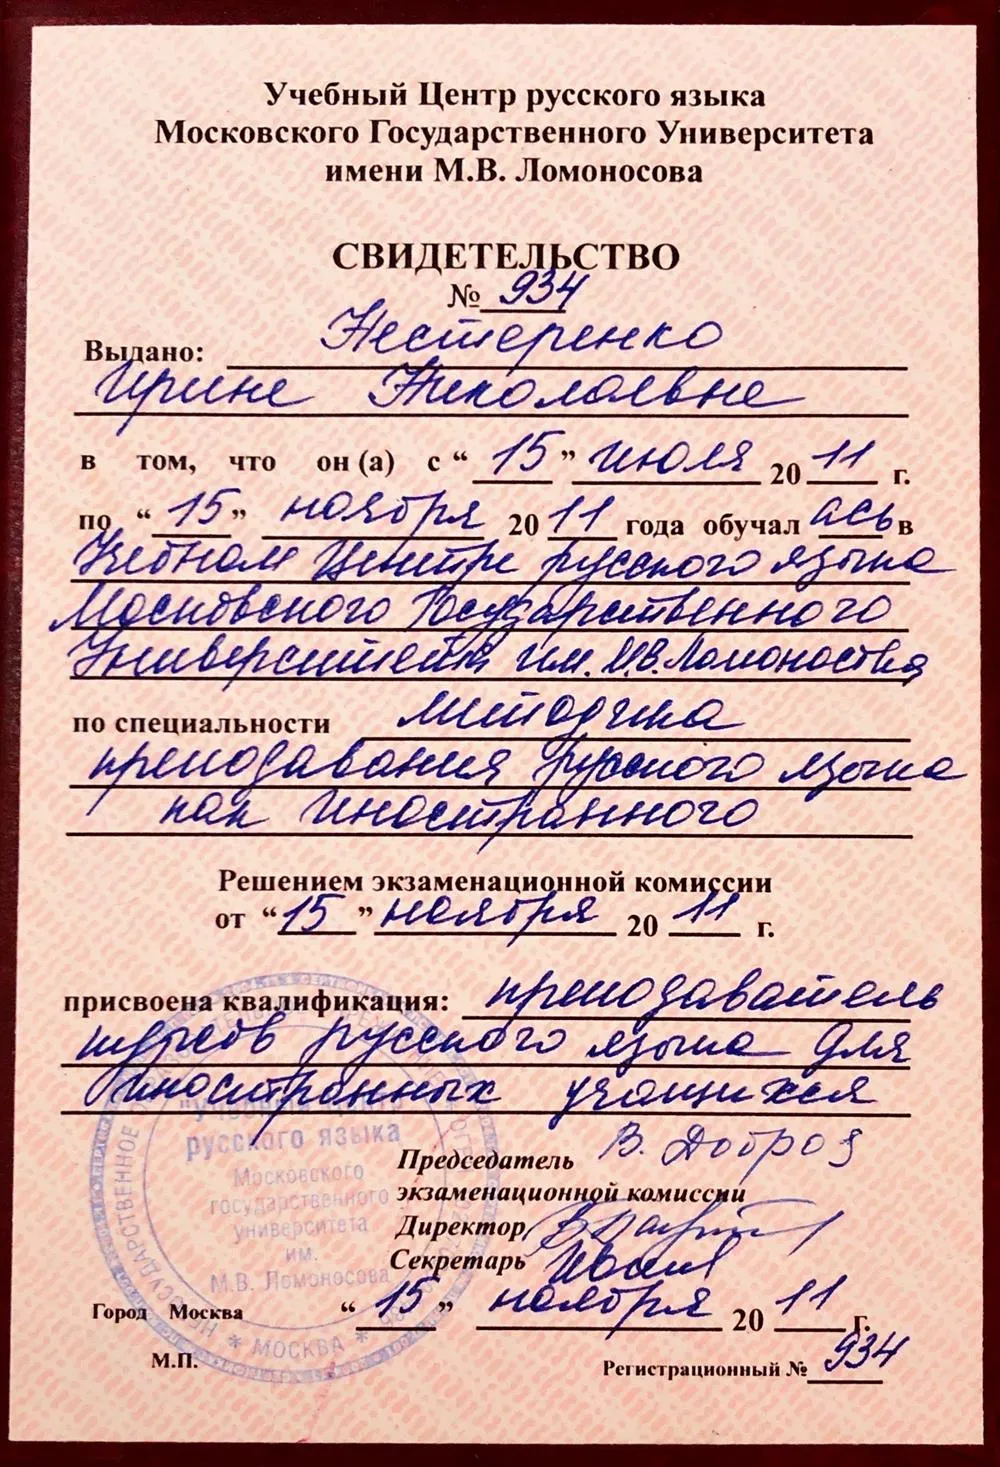 Учебный Центр русского языка
Московского Государственного Университета
имени М.В. Ломоносова
СВИДЕТЕЛЬСТВО
№ 934
Выдано: Нестеренко
Ирине Николаевне
в том, что он (а) с “15” июля 2011 г.
по “15” ноября 2011 года обучалась в
Учебном Центре русского языка
Московского Государственного
Университета им. М.В. Ломоносова
по специальности методика
преподавания русского языка
как иностранного
Решением экзаменационной комиссии
от “15” ноября 2011 г.
присвоена квалификация: преподаватель
курсов русского языка для
иностранных учащихся
"Учебный Центр
русского языка
Московского
государственного
университета
им.
М.В. Ломоносова
* МОСКВА *
Председатель В. Доброз
экзаменационной комиссии
Директор
Секретарь
Город Москва “15” ноября 2011 г.
М.П.
Регистрационный № 934